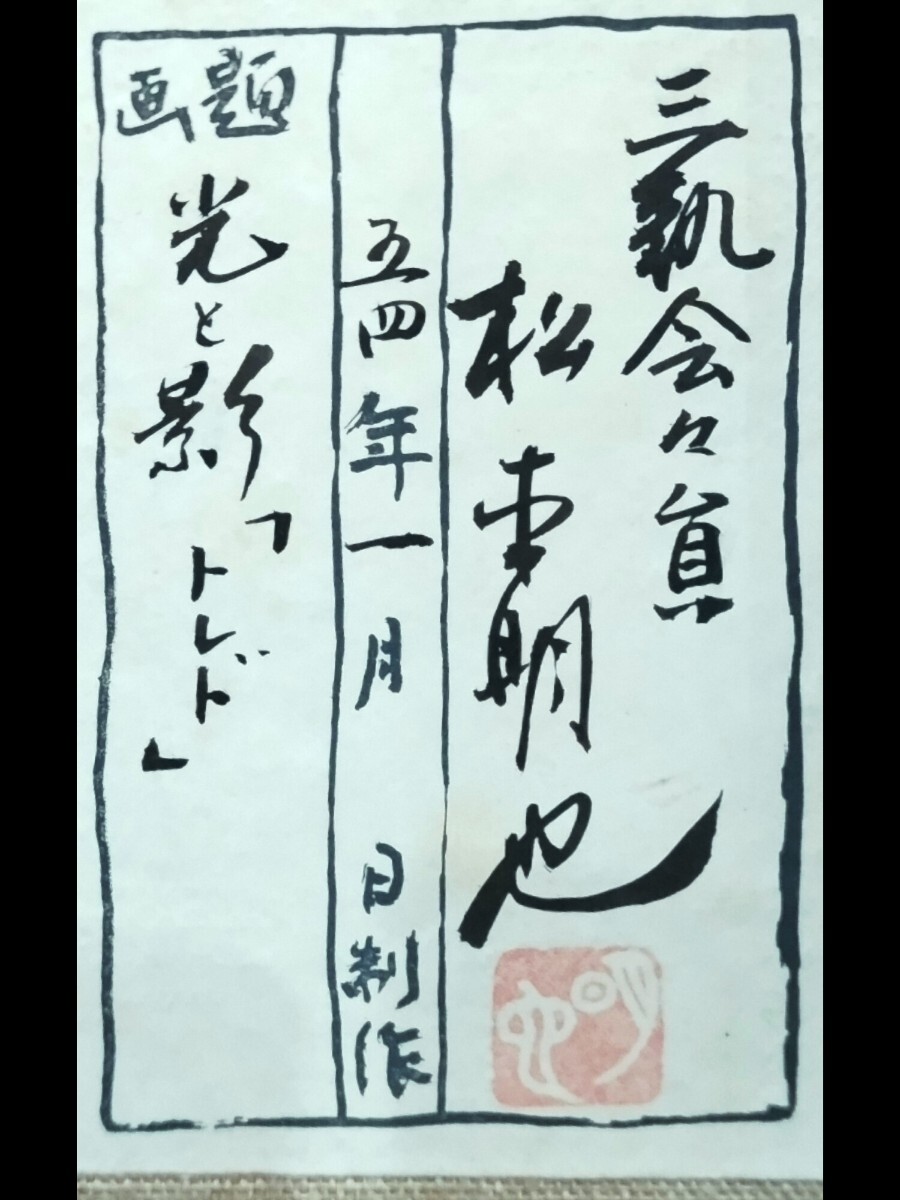 三軌会々員
松本明也
明也
五四年一月 日制作
画題
光と影「トレド」